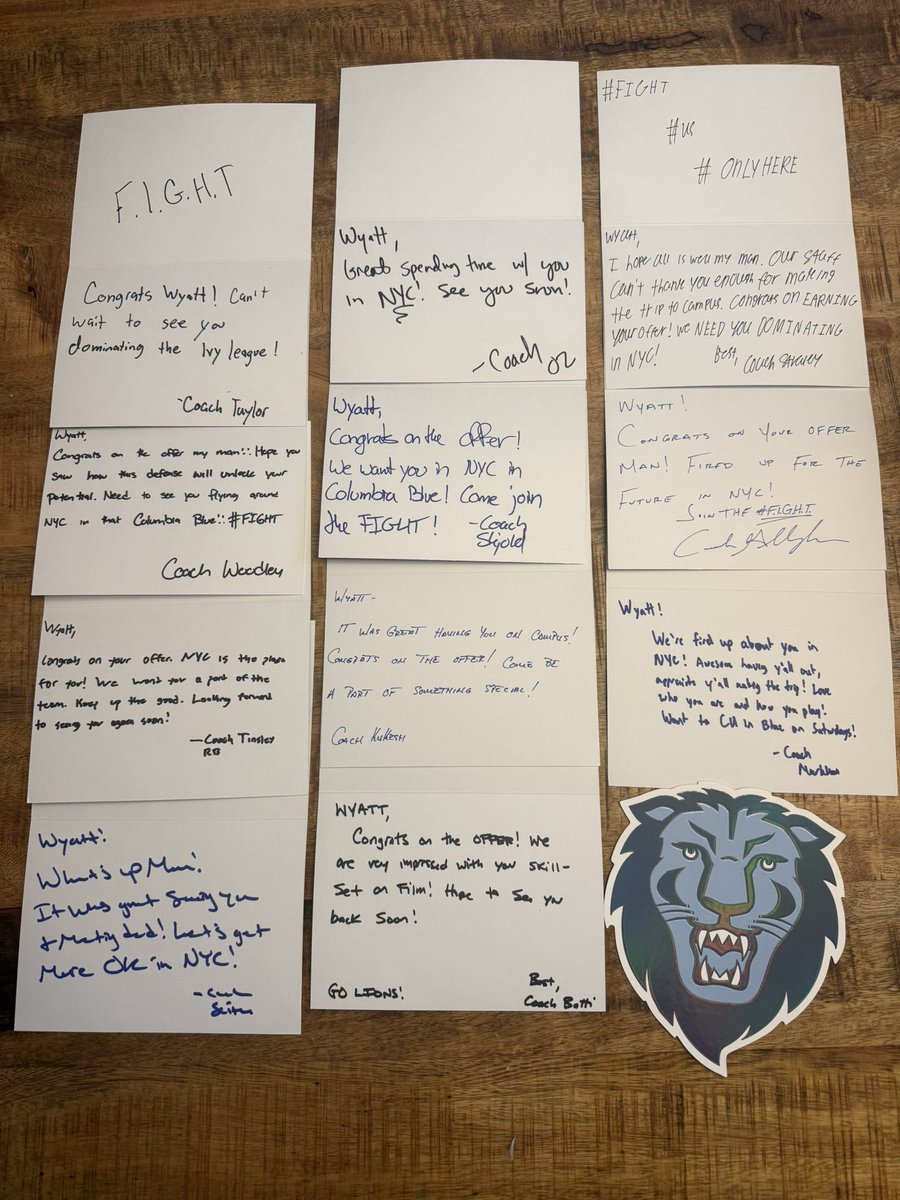 F.I.G.H.T
Congrats Wyatt! Can't
wait to see you
dominating the Ivy league!
-Coach Taylor
Wyatt,
Congrats on the offer my man:: Hope you
saw how this defense will unlock your
potential. Need to see you flying around
NYC in that Columbia Blue:: #FIGHT
Coach Woodley
Wyatt,
Congrats on your offer. NYC is the place
for you! We want you a part of the
team. Keep up the good. Looking forward
to seeing you again soon!
-Coach Tinsley
RB
Wyatt!
What's up Man!
It was great Seeing you
+ Meeting dad! Let's get
More OK in NYC!
-Coach
Wyatt,
Great spending time w/ you
in NYC! See you soon!
-Coach
Wyatt,
Congrats on the offer!
We want you in NYC in
Columbia Blue! Come join
the FIGHT! -Coach
Skjold
WYATT-
IT WAS GREAT HAVING YOU ON CAMPUS!
CONGRATS ON THE OFFER! COME BE
A PART OF SOMETHING SPECIAL!
COACH KUKESH
WYATT,
Congrats on the OFFER! We
are very impressed with your Skill-
Set on Film! Hope to See you
back Soon!
GO LIONS!
Best,
Coach Botti
#FIGHT
#us
# ONLYHERE
WYATT,
I hope all is well my man. OUR Staff
can't thank you enough for making
the trip to campus. Congrats on EARNING
your offer! We NEED YOU DOMINATING
in NYC!
Best, Coach
WYATT!
CONGRATS ON YOUR OFFER
MAN! FIRED UP FOR THE
FUTURE IN NYC!
JOIN THE #F.I.G.H.T.
Wyatt!
We're fired up about you in
NYC! Awesome having y'all out,
appreciate y'all making the trip! Love
who you are and how you play!
Want to CU in Blue on Saturdays!
-Coach